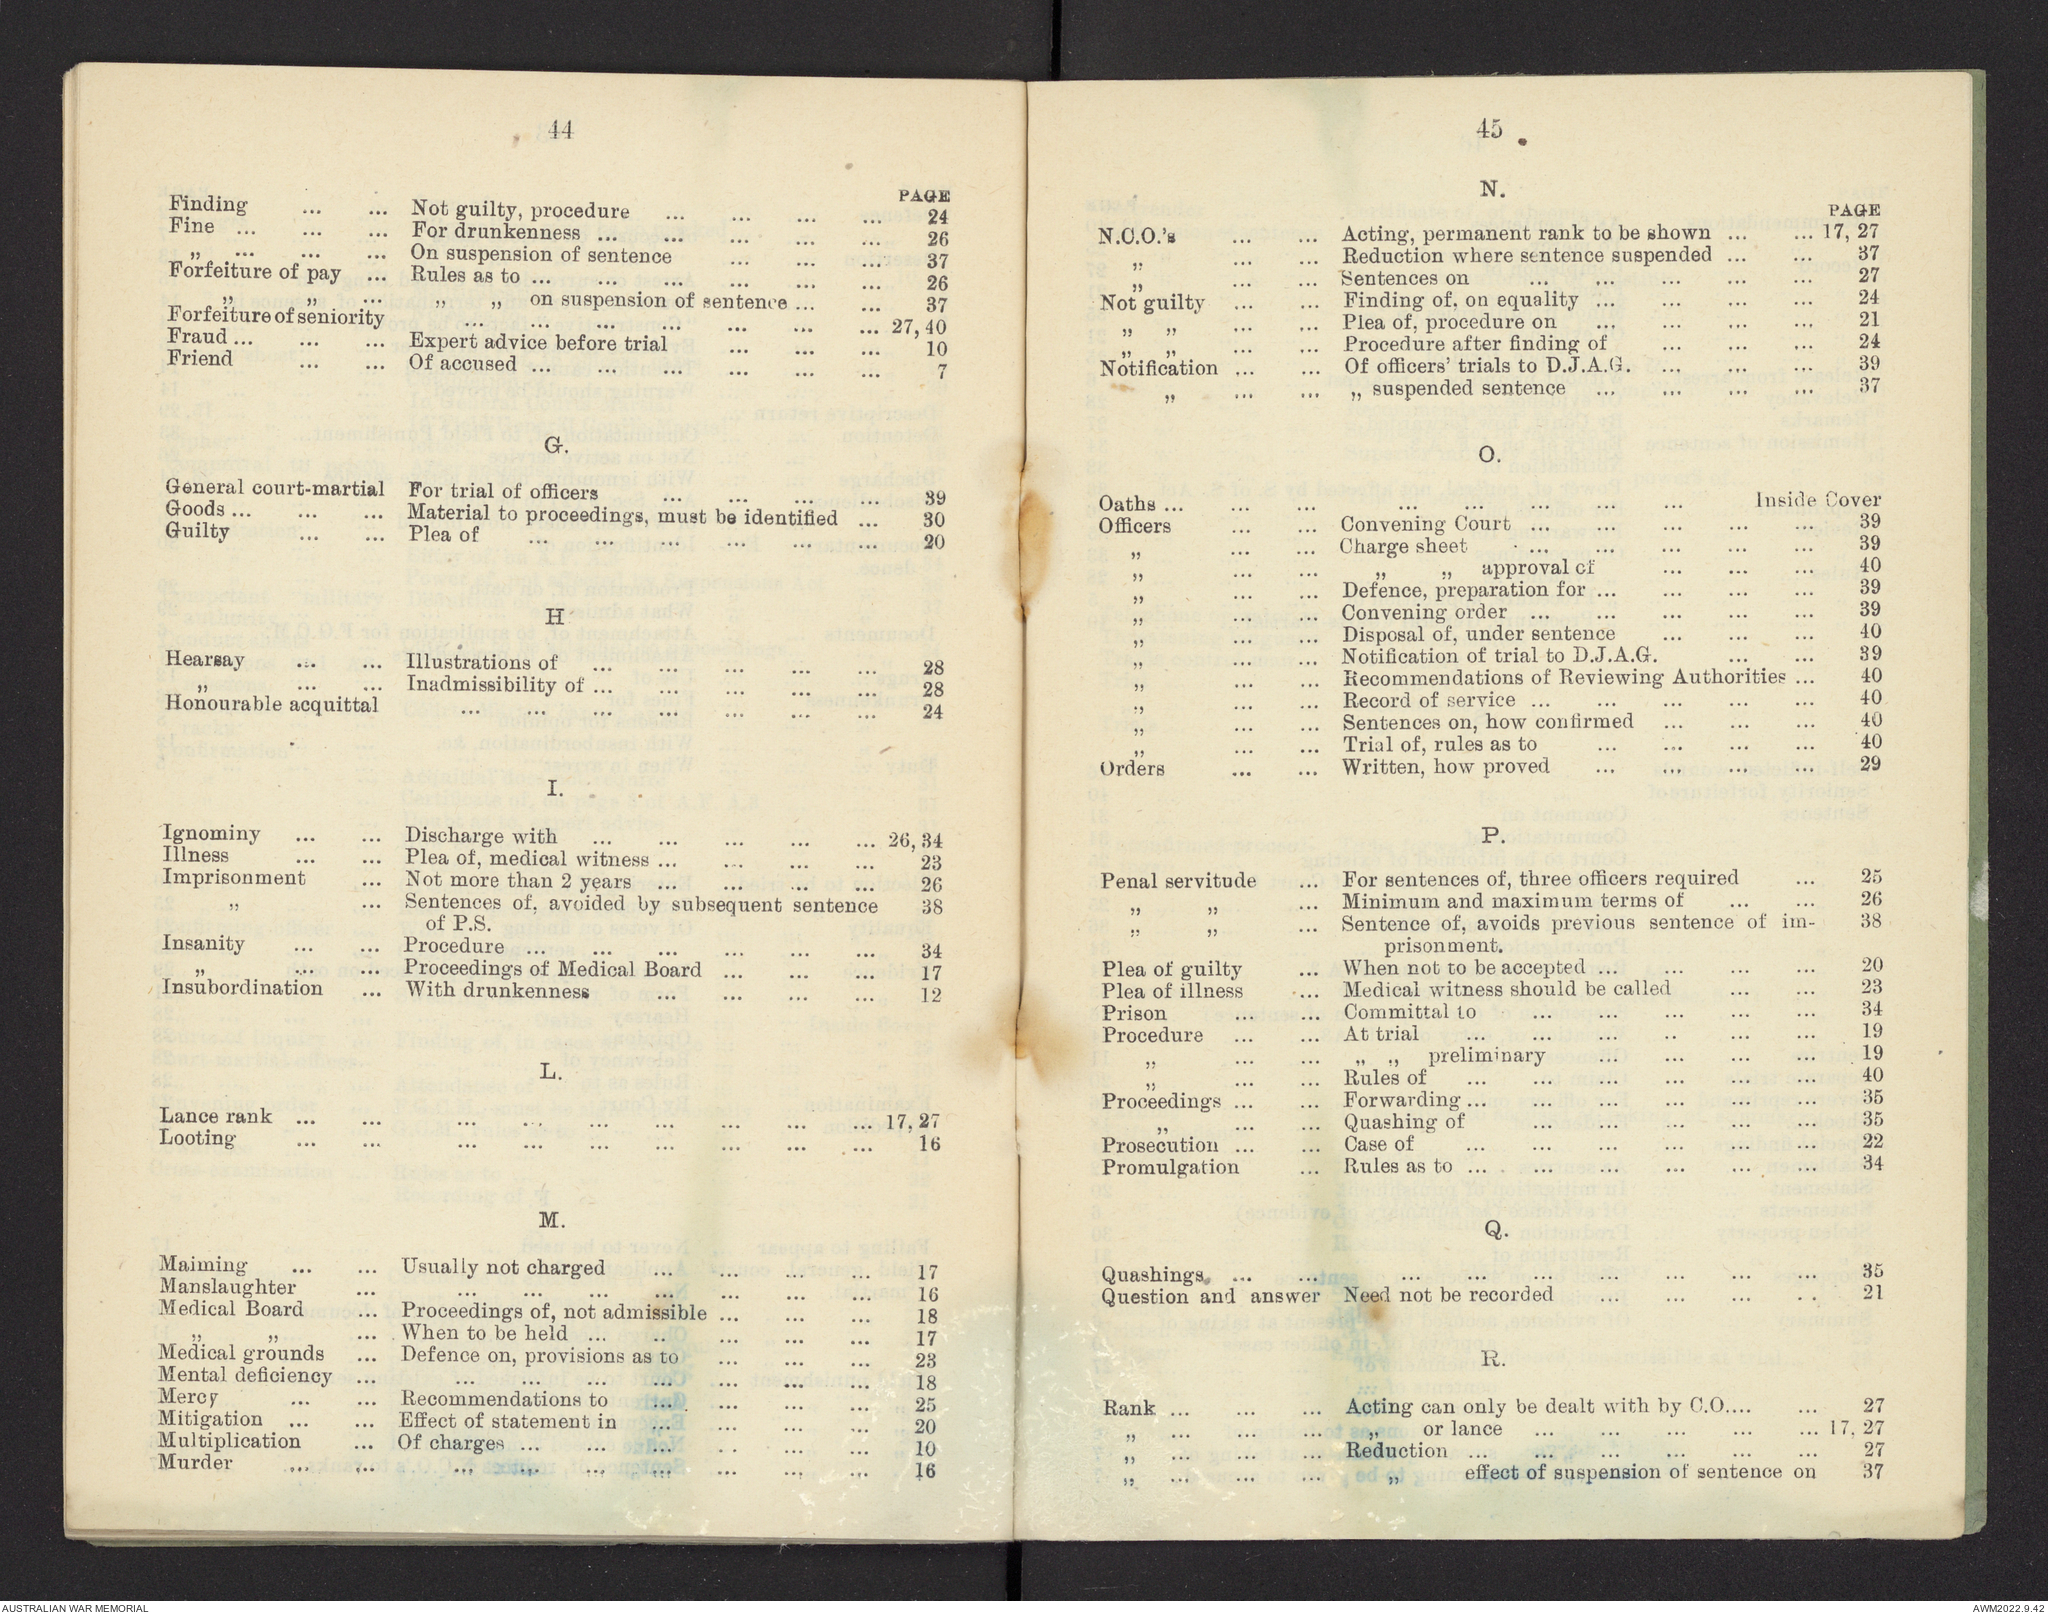 44
PAGE
Finding ... ... Not guilty, procedure ... ... ... ... 24
Fine ... ... ... For drunkenness ... ... ... ... ... 26
„ ... ... ... On suspension of sentence ... ... ... 37
Forfeiture of pay ... Rules as to ... ... ... ... ... ... 26
„ „ ... „ „ on suspension of sentence ... ... 37
Forfeiture of seniority ... ... ... ... ... ... ... 27, 40
Fraud ... ... ... Expert advice before trial ... ... ... 10
Friend ... ... Of accused ... ... ... ... ... ... 7
G.
General court-martial For trial of officers ... ... ... ... 39
Goods ... ... ... Material to proceedings, must be identified ... 30
Guilty ... ... Plea of ... ... ... ... ... ... 20
H
Hearsay ... ... Illustrations of ... ... ... ... ... 28
„ ... ... Inadmissibility of ... ... ... ... ... 28
Honourable acquittal ... ... ... ... ... ... ... 24
I.
Ignominy ... ... Discharge with ... ... ... ... ... 26, 34
Illness ... ... Plea of, medical witness ... ... ... ... 23
Imprisonment ... Not more than 2 years ... ... ... ... 26
„ ... Sentences of, avoided by subsequent sentence 38
of P.S.
Insanity ... ... Procedure ... ... ... ... ... ... 34
„ ... ... Proceedings of Medical Board ... ... ... 17
Insubordination ... With drunkenness ... ... ... ... 12
L.
Lance rank ... ... ... ... ... ... ... ... ... 17, 27
Looting ... ... ... ... ... ... ... ... ... 16
M.
Maiming ... ... Usually not charged ... ... ... ... 17
Manslaughter ... ... ... ... ... ... ... ... 16
Medical Board ... Proceedings of, not admissible ... ... ... 18
„ „ ... When to be held ... ... ... ... ... 17
Medical grounds ... Defence on, provisions as to ... ... ... 23
Mental deficiency ... ... ... ... ... ... ... ... 18
Mercy ... ... Recommendations to ... ... ... ... 25
Mitigation ... ... Effect of statement in ... ... ... ... 20
Multiplication ... Of charges ... ... ... ... ... ... 10
Murder ... ... ... ... ... ... ... ... ... 16
45
N.
PAGE
N.C.O.'s ... ... Acting, permanent rank to be shown ... ... 17, 27
„ ... ... Reduction where sentence suspended ... ... 37
„ ... ... Sentences on ... ... ... ... ... 27
Not guilty ... ... Finding of, on equality ... ... ... ... 24
„ „ ... ... Plea of, procedure on ... ... ... ... 21
„ „ ... ... Procedure after finding of ... ... ... 24
Notification ... ... Of officers' trials to D.J.A.G. ... ... ... 39
„ ... ... „ suspended sentence ... ... ... ... 37
O.
Oaths ... ... ... ... ... ... ... ... ... Inside Cover
Officers ... ... Convening Court ... ... ... ... ... 39
„ ... ... Charge sheet ... ... ... ... ... 39
„ ... ... „ „ approval of ... ... ... 40
„ ... ... Defence, preparation for ... ... ... ... 39
„ ... ... Convening order ... ... ... ... ... 39
„ ... ... Disposal of, under sentence ... ... ... 40
„ ... ... Notification of trial to D.J.A.G. ... ... 39
„ ... ... Recommendations of Reviewing Authorities ... 40
„ ... ... Record of service ... ... ... ... ... 40
„ ... ... Sentences on, how confirmed ... ... ... 40
„ ... ... Trial of, rules as to ... ... ... ... 40
Orders ... ... Written, how proved ... ... ... ... 29
P.
Penal servitude ... For sentences of, three officers required ... 25
„ „ ... Minimum and maximum terms of ... ... 26
„ „ ... Sentence of, avoids previous sentence of im- 38
prisonment.
Plea of guilty ... When not to be accepted ... ... ... ... 20
Plea of illness ... Medical witness should be called ... ... 23
Prison ... ... Committal to ... ... ... ... ... 34
Procedure ... ... At trial ... ... ... ... ... ... 19
„ ... ... „ „ preliminary ... ... ... ... 19
„ ... ... Rules of ... ... ... ... ... ... 40
Proceedings ... ... Forwarding ... ... ... ... ... ... 35
„ ... ... Quashing of ... ... ... ... ... 35
Prosecution ... ... Case of ... ... ... ... ... ... 22
Promulgation ... Rules as to ... ... ... ... ... ... 34
Q.
Quashings ... ... ... ... ... ... ... ... ... 35
Question and answer Need not be recorded ... ... ... ... 21
R.
Rank ... ... ... Acting can only be dealt with by C.O. ... ... 27
„ ... ... ... „ or lance ... ... ... ... ... 17, 27
„ ... ... ... Reduction ... ... ... ... ... ... 27
„ ... ... ... „ effect of suspension of sentence on 37
AUSTRALIAN WAR MEMORIAL
AWM2022.9.42